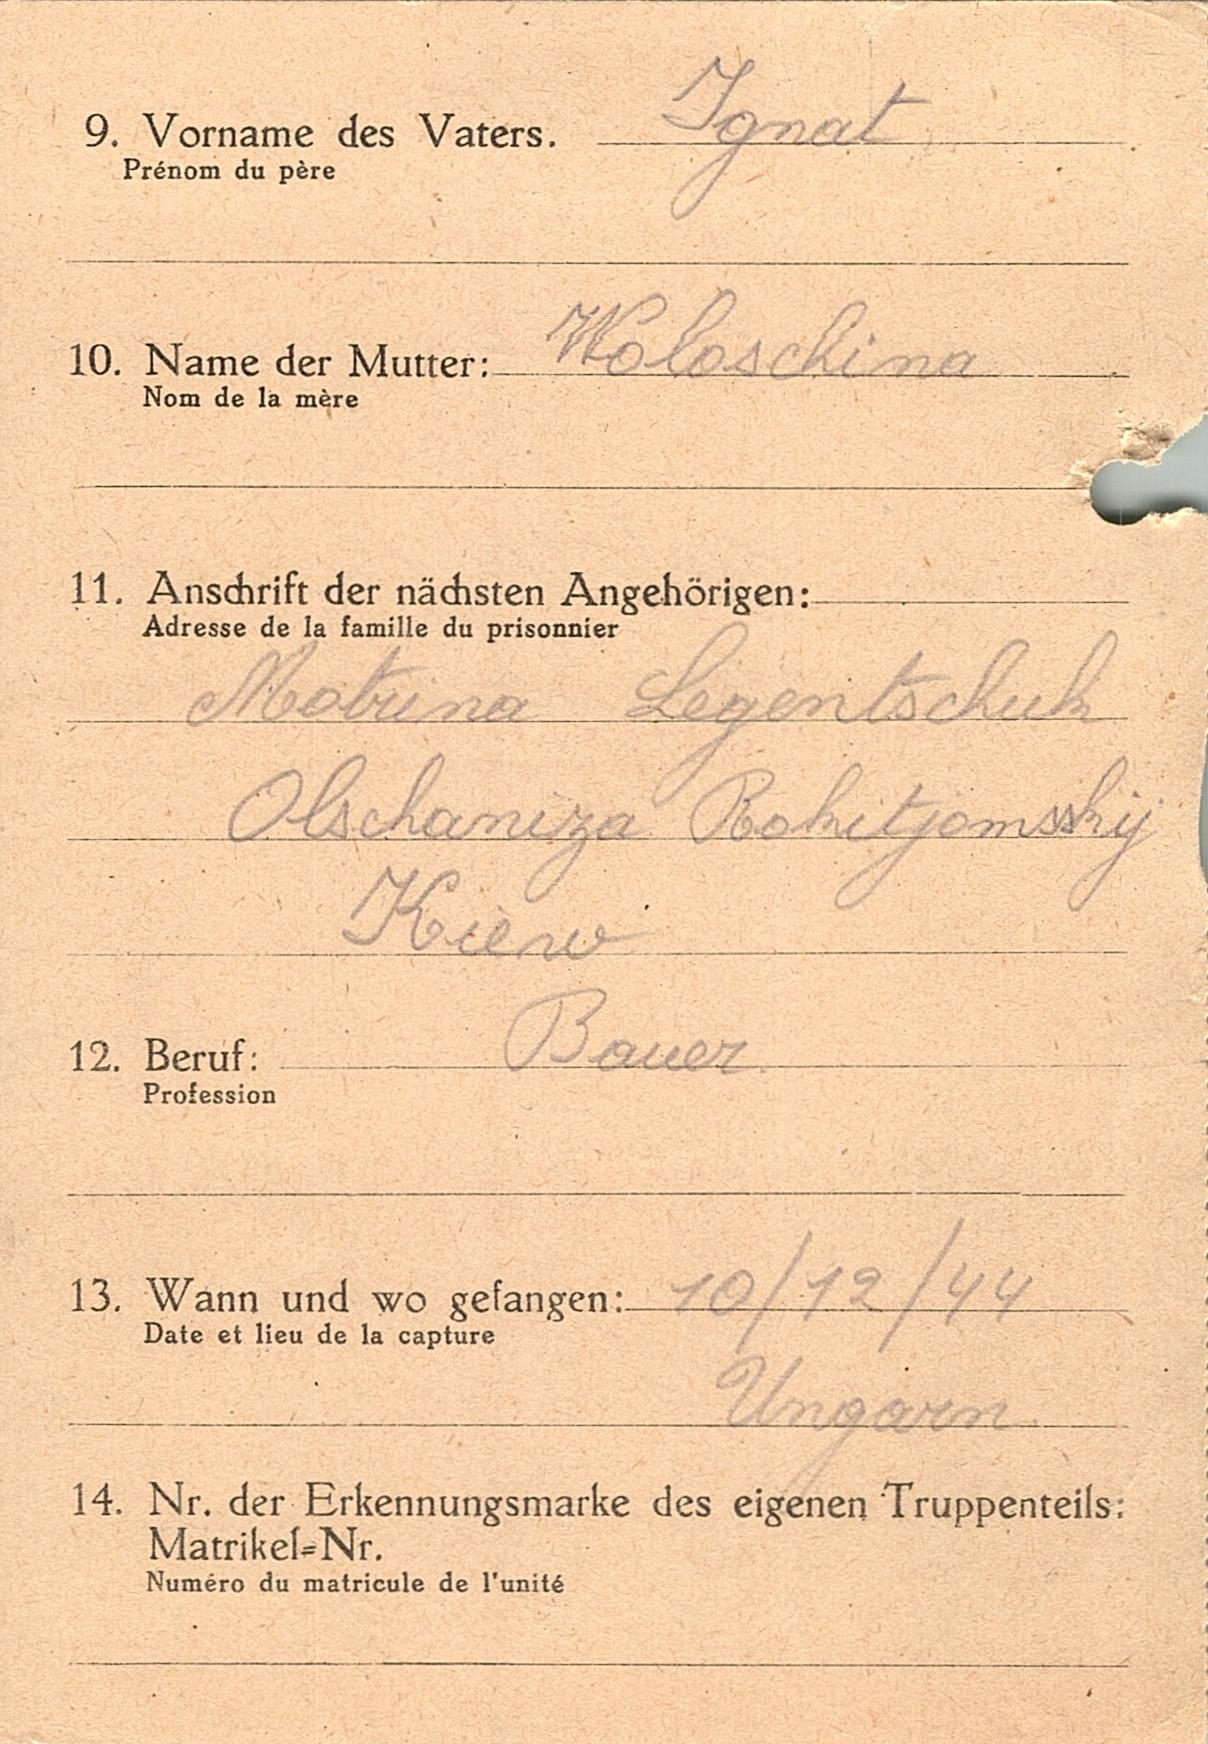 9. Vorname des Vaters. Ignat
Prénom du père
10. Name der Mutter: Woloschina
Nom de la mère
11. Anschrift der nächsten Angehörigen:
Adresse de la famille du prisonnier
Motrina Legentschuk
Olschaniza Rokitjomsskij
Kiew
12. Beruf: Bauer
Profession
13. Wann und wo gefangen: 10/12/44
Date et lieu de la capture
Ungarn
14. Nr. der Erkennungsmarke des eigenen Truppenteils:
Matrikel-Nr.
Numéro du matricule de l'unité